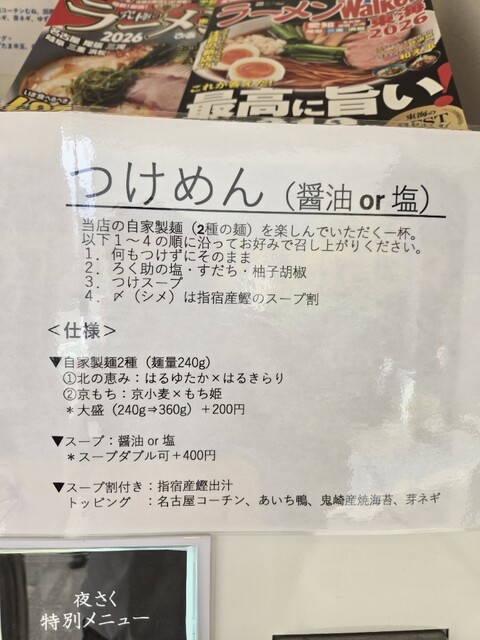 究極の
ラーメン
名古屋 尾張 三河
岐阜 三重 浜松
2026
ラーメン
Walker
東海
2026
これが答えだ!
最高に旨い!
つけめん（醤油 or 塩）
当店の自家製麺（2種の麺）を楽しんでいただく一杯。
以下１～４の順に沿ってお好みで召し上がりください。
１．何もつけずにそのまま
２．ろく助の塩・すだち・柚子胡椒
３．つけスープ
４．〆（シメ）は指宿産鰹のスープ割
＜仕様＞
▼自家製麺2種（麺量240g）
①北の恵み：はるゆたか×はるきらり
②京もち：京小麦×もち姫
＊大盛（240g⇒360g）＋200円
▼スープ：醤油 or 塩
＊スープダブル可＋400円
▼スープ割付き：指宿産鰹出汁
トッピング　：名古屋コーチン、あいち鴨、鬼崎産焼海苔、芽ネギ
夜さく
特別メニュー